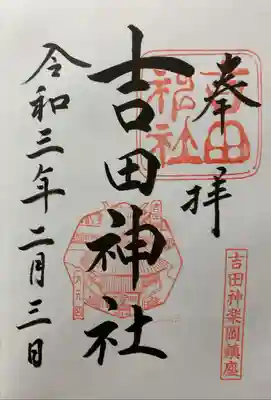 奉拝
吉田神社
吉田神社
令和三年二月三日
吉田神楽岡鎮座